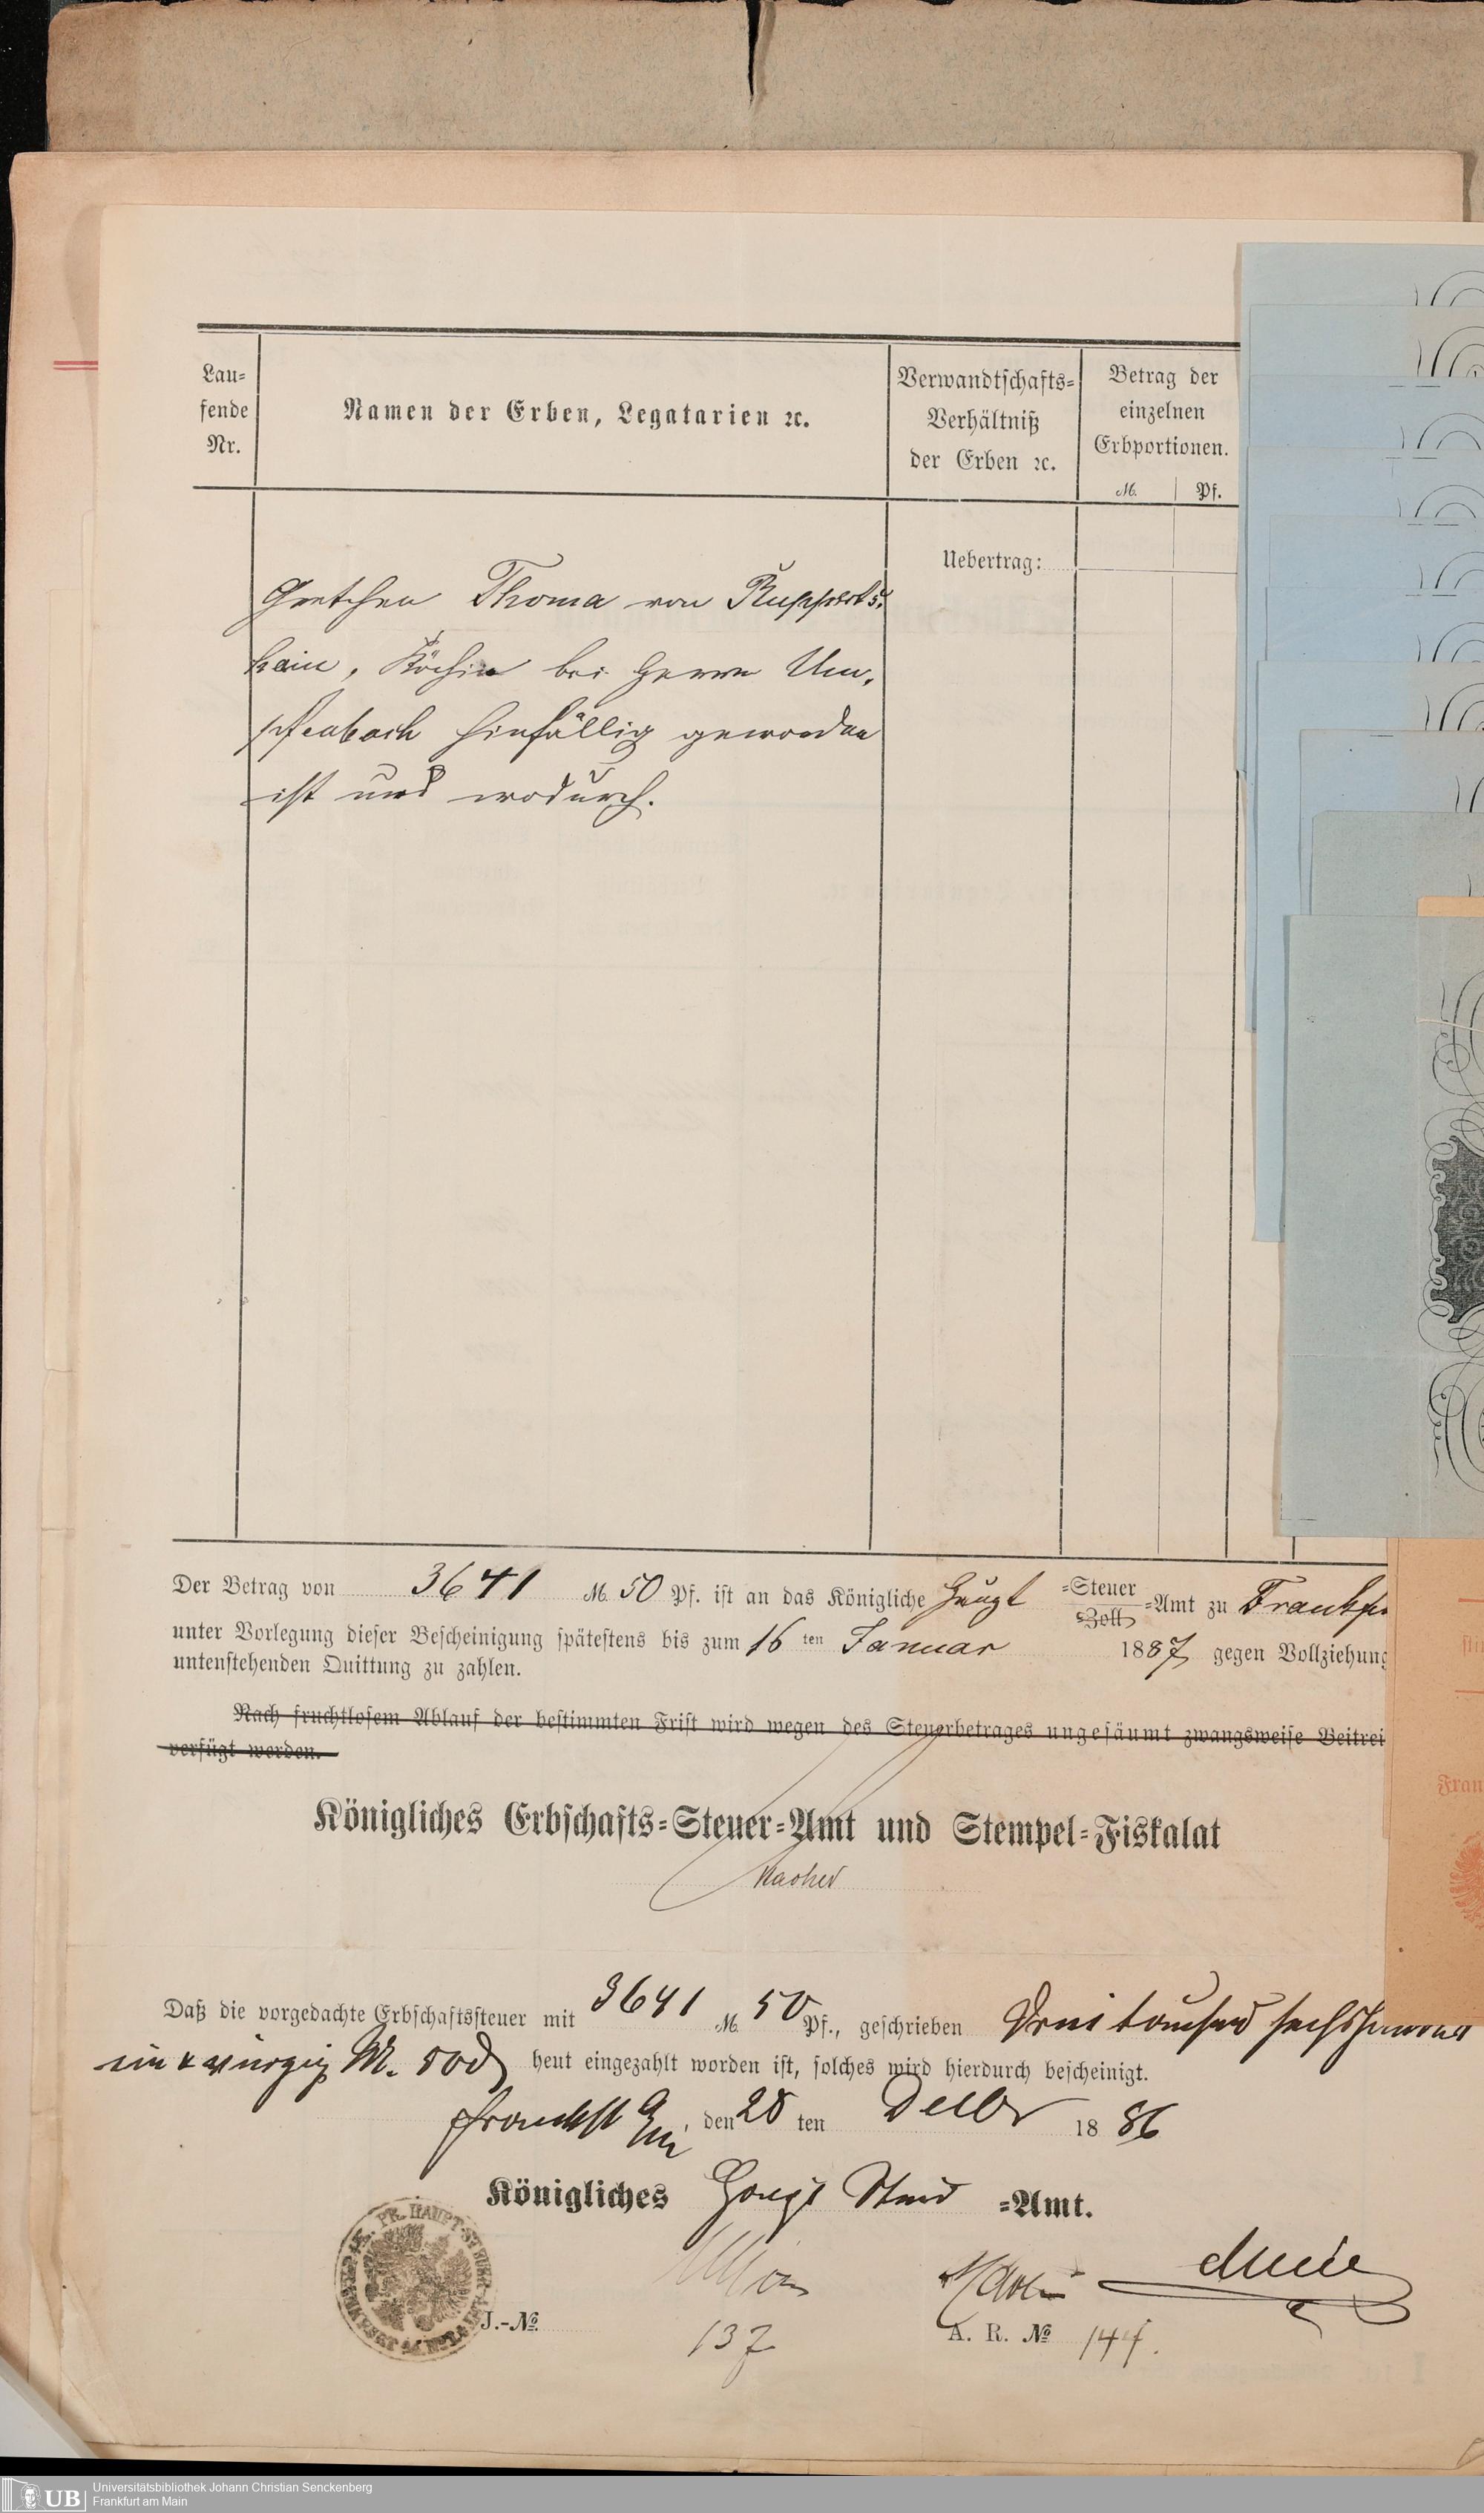 Lau=
fende
Nr.
Namen der Erben, Legatarien ꝛc.
Verwandtschafts=
Verhältniß
der Erben ꝛc.
Betrag der
einzelnen
Erbportionen.
M. Pf.
Uebertrag:
Gretchen Thoma von Rupperts-
hain, Köchin bei Herrn Um-
pfenbach hinfällig geworden
ist und wodurch.
Der Betrag von 3641 M. 50 Pf. ist an das Königliche Haupt =Steuer
=Zoll =Amt zu Frankfu
unter Vorlegung dieser Bescheinigung spätestens bis zum 16 ten Januar 1887 gegen Vollziehung
untenstehenden Quittung zu zahlen.
Nach fruchtlosem Ablauf der bestimmten Frist wird wegen des Steuerbetrages ungesäumt zwangsweise Beitrei
verfügt werden.
Königliches Erbschafts=Steuer=Amt und Stempel=Fiskalat
Daß die vorgedachte Erbschaftssteuer mit 3641 M. 50 Pf., geschrieben Drei tausend sechshundert
ein & vierzig M. 50 d heut eingezahlt worden ist, solches wird hierdurch bescheinigt.
Frankft a/m, den 28 ten Decbr 1886
Königliches Haupt Steuer =Amt.
PR. HAUPT-STEUER-AMT
J.-№ 137
A. R. № 144.
UB
Universitätsbibliothek Johann Christian Senckenberg
Frankfurt am Main